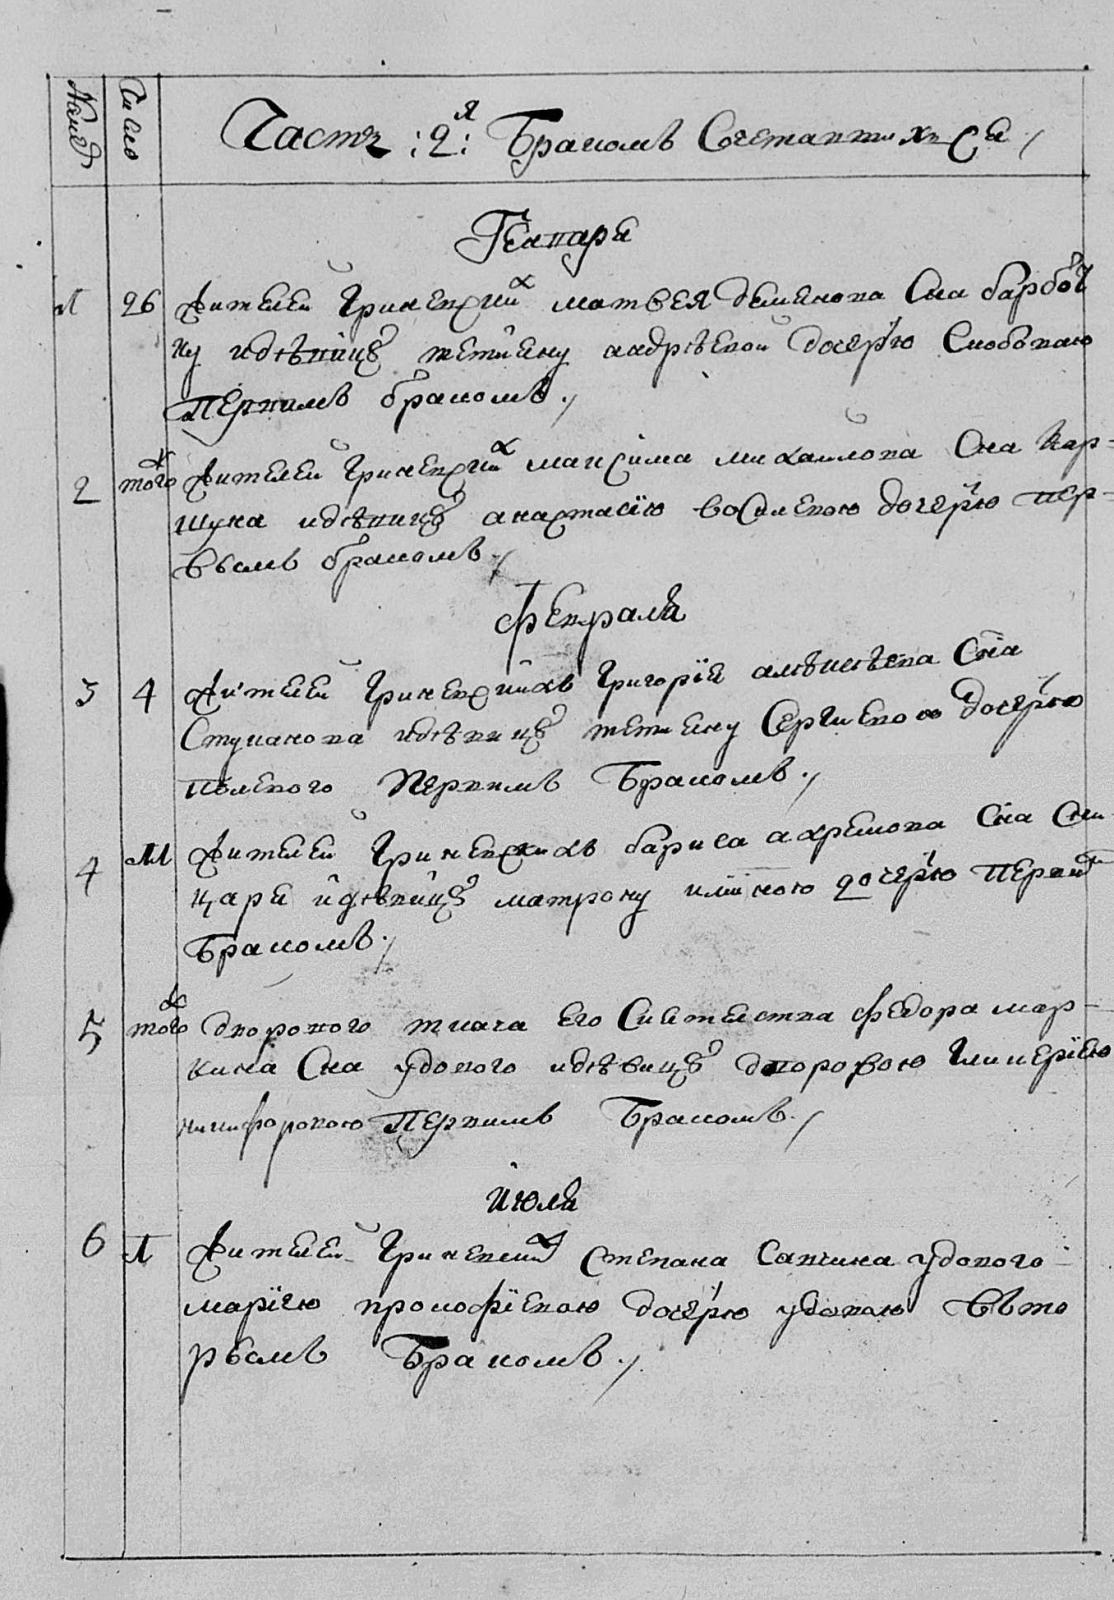 Номер Число Часть :2я: Бракомъ Сочетавшихся
Генваря
1 26 Жителей Гриневских матвея деменова Сна барбоч
ку идѣвицу тетиену андрѣевой дочерю Снобоваю
Первимъ бракомъ.
2 того ж Жителей Гриневских максима михаилова Сна Кар-
шука идѣвицу анастасїю восилевою дочерю пер-
вымъ бракомъ.
Февраля
3 4 Жителей Гриневскихъ Григорїя алѣксѣева Сна
Ступакова идѣвицу тетиену Сергиевою дочерю
Первимъ Бракомъ.
4 11 Жителей Гриневскихъ бариса ахремова Сна Сни
царя идѣвицу матрону дочерю Первим
Бракомъ.
5 того ж дворового ткача его Сиятелства федора мар-
кина Сна удового идѣвицу дворовою Гликерїею
никифоровою Первимъ Бракомъ.
июля
6 Жителей Гриневских Степана Савчика удового
марїею прокофїевою дочерю удовою въто
рымъ Бракомъ.